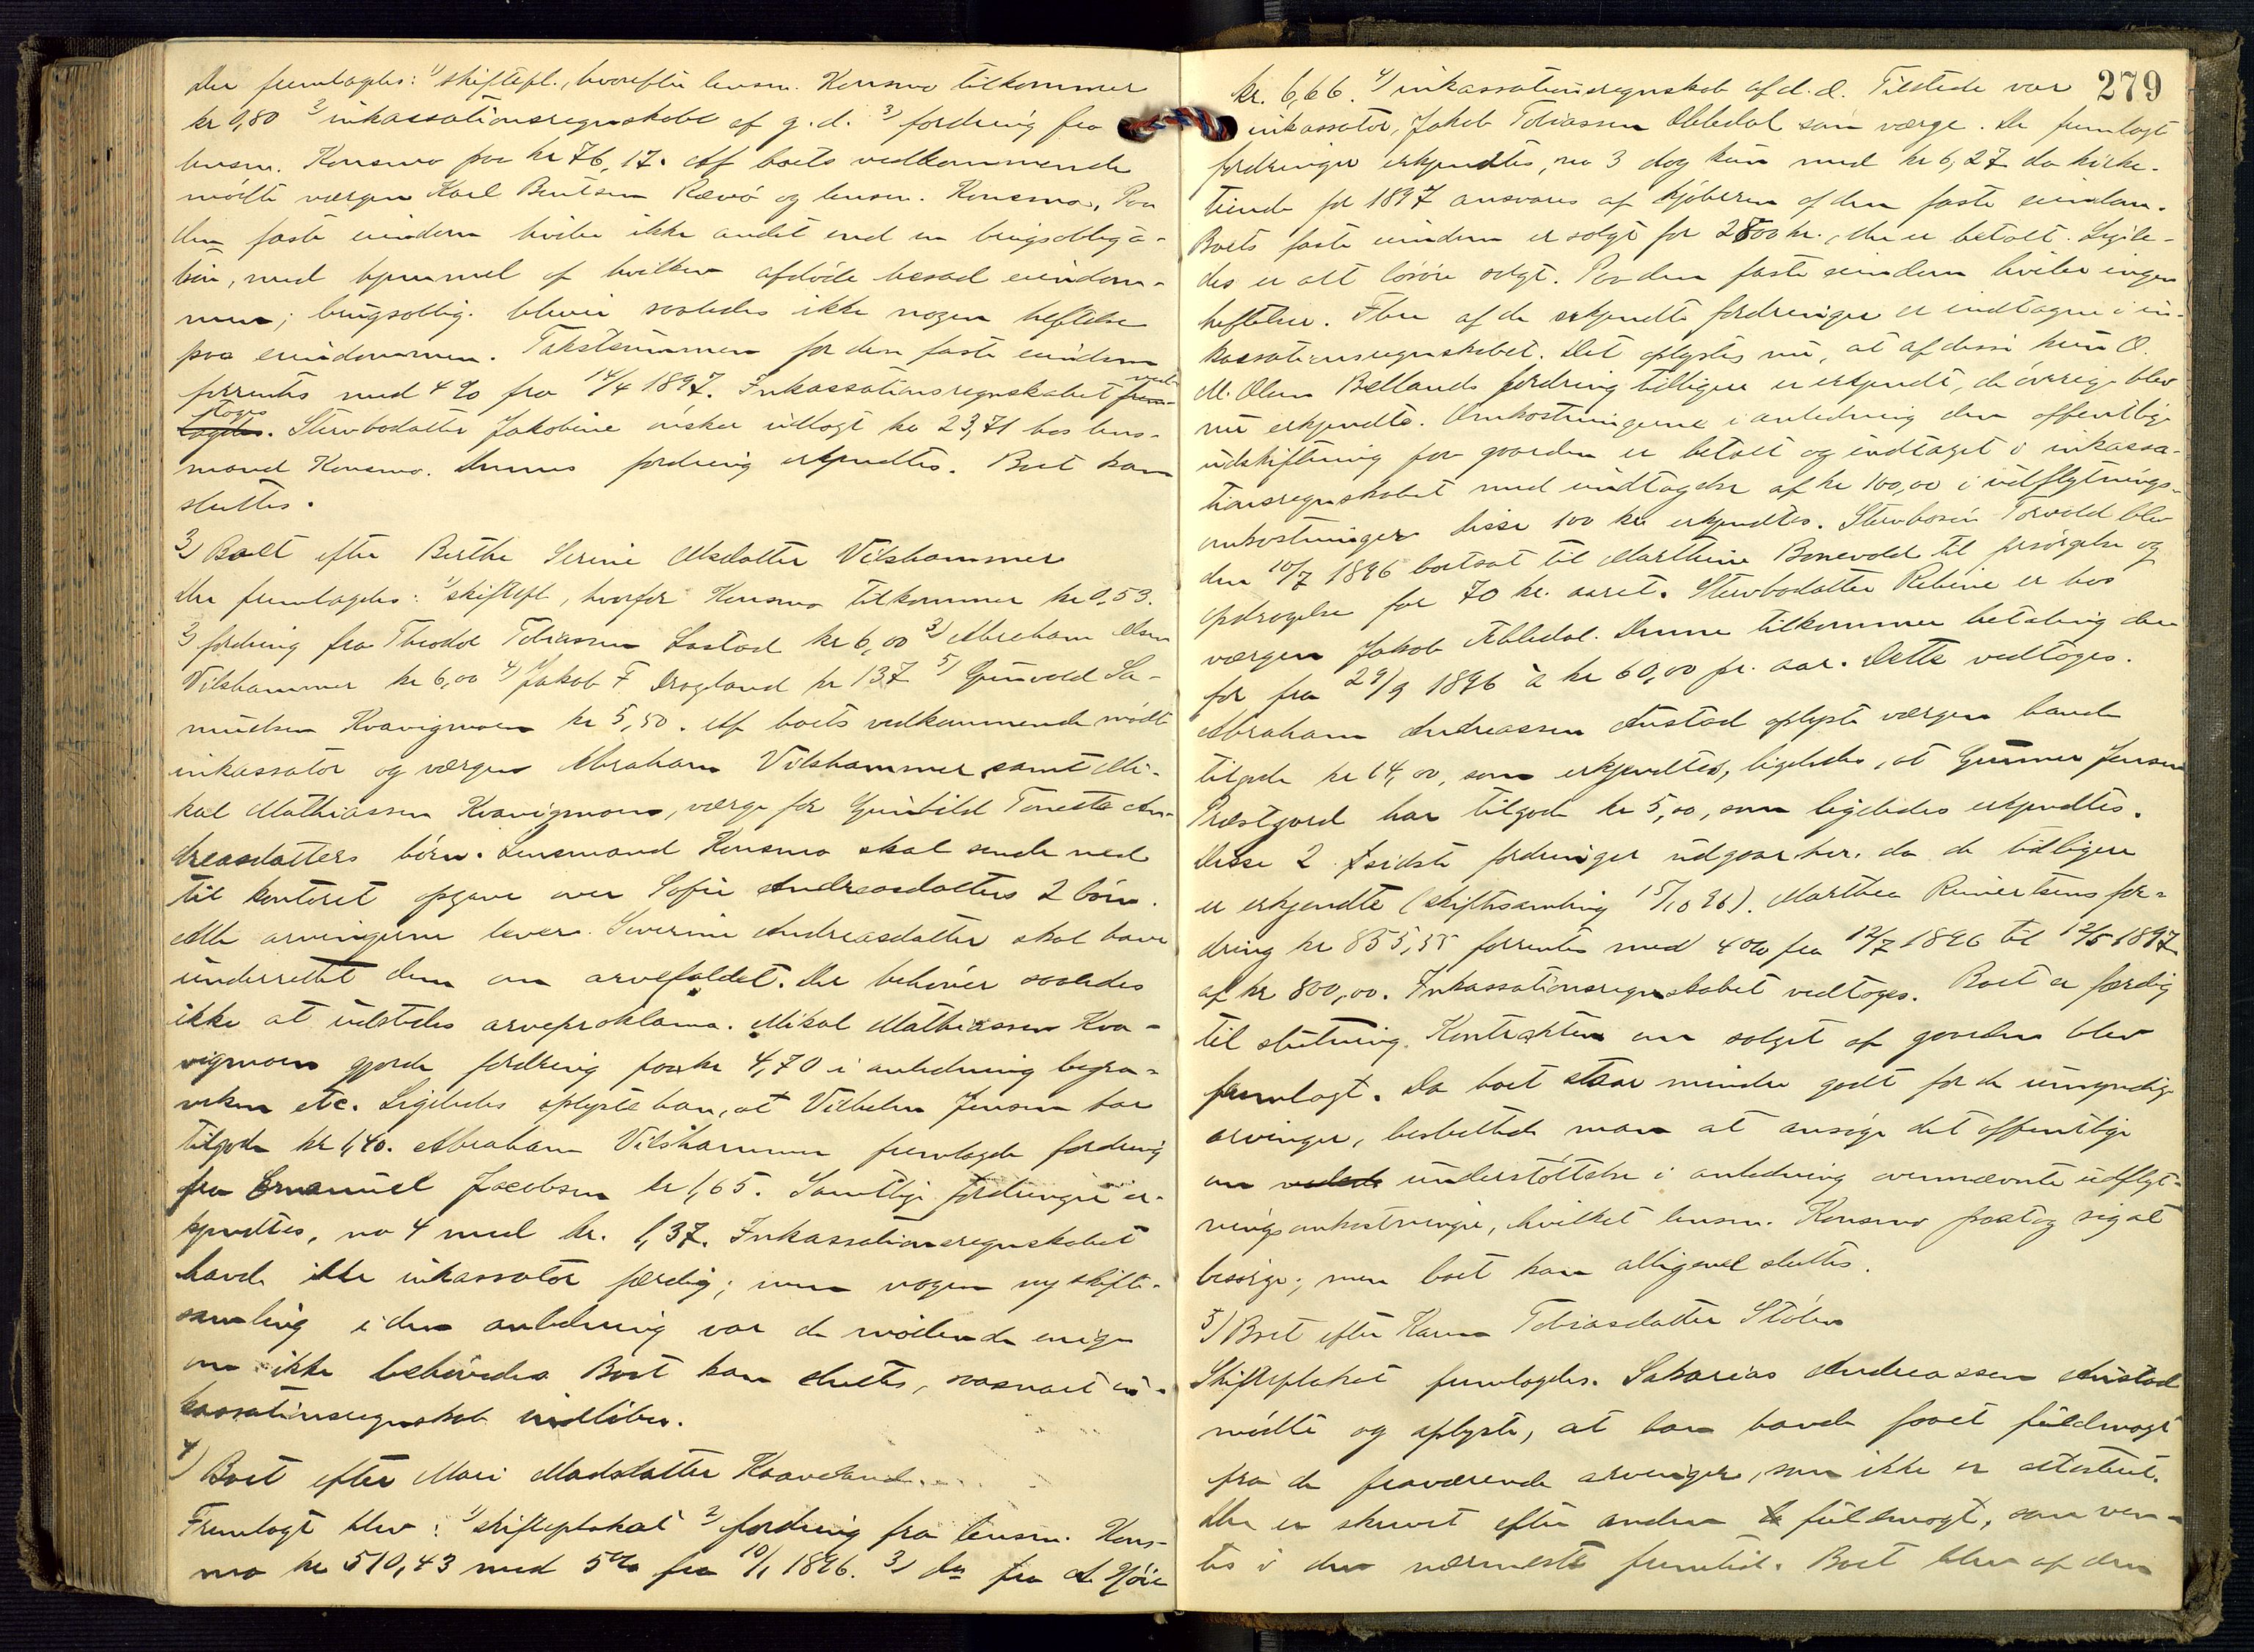 Der fremlagdes: 1) skiftepl., hvorefter lensm. Konsmo tilkommer
kr 0,80 2) inkassationsregnskabet af g. d. 3) fordring fra
lensm. Konsmo paa kr 76,17. Af boets vedkommende
mødte værgen Karl Bentsen Rævø og lensm. Konsmo. Paa
den faste eiendom hviler ikke andet end en bøigsobliga-
tion, med hjemmel af hvilken afdøde besad eiendom-
men; obblig. bliver saaledes ikke nogen heftelse
paa eiendommen. Takstsummen for den faste eiendom
forrentes med 4 % fra 14/4 1897. Inkassationsregnskabet ved-
toges. Stervbodatter Jakobine ønsker udlagt kr 23,71 hos lens-
mand Konsmo. Dennes fordring erkjendtes. Boet kan
sluttes.
3) Boet efter Berthe Serine Alsdatter Vilshammer
Der fremlagdes: 1) skiftepl, hvorfor Konsmo tilkommer kr 0,53.
2) fordring fra Theodor Tobiassen Lastad kr 6,00 3) Abraham Olsen
Vilshammer kr 6,00 4) Jakob F Drogland kr 137 5) Gunvald Sa-
muelsen Kvavigmoen kr 5,50. Af boets vedkommende mødte
inkassator og værgen Abraham Vilshammer samt Mi-
kal Mathiassen Kvavigmoen, værge for Gunhild Toneste An-
dreasdatters børn. Lensmand Konsmo skal sende ned
til kontoret opgave over Sofie Andreasdatters 2 børn.
Alle arvingerne lever. Severine Andreasdatter skal have
underrettet dem om arvefaldet. Der behøver saaledes
ikke at udstedes arveproklama. Mikal Mathiassen Kva-
vigmoen gjorde fordring paa kr 4,70 i anledning begra-
velsen etc. Ligeledes oplyste han, at Vilhelm Jensen har
tilgode kr 1,40. Abraham Vilshammer fremlagde fordring
fra Emanuel Jacobsen kr 1,65. Samtlige fordringer er-
kjendtes, no 4 med kr. 1,37. Inkassationsregnskabet
havde ikke inkassator færdig; men nogen ny skifte-
samling i den anledning var de mødende enige
om ikke behøvedes Boet kan sluttes, saasnart in-
kassationsregnskab indløber.
4) Boet efter Mari Madsdatter Haaveland.
Fremlagt blev: 1) skifteplakat 2) fordring fra lensm. Kons-
mo kr 510,43 med 5 % fra 10/1 1896. 3) do fra A. Høie
279
kr. 6,66. 4) inkassationsregnskab af d. d. Tilstede var
inkassator, Jakob Tobiassen Ubledal som værge. De fremlagte
fordringer erkjendtes, no 3 dog kun med kr 6,27 da kirke-
tiende for 1897 ansvares af kjøberen af den faste eiendom.
Boets faste eiendom er solgt for 2800 kr., der er betalt. Ligele-
des er alt løsøre solgt. Paa den faste eiendom hviler ingen
heftelser. Flere af de erkjendte fordringer er indtagne i in-
kassationsregnskabet. Det oplystes nu, at af disse kun O.
M. Olsen Bellands fordring tidligere er erkjendt, de øvrige blev
nu erkjendte. Omkostningerne i anledning den offentlige
udskiftning paa gaarden er betalt og indtaget i inkassa-
tionsregnskabet med undtagelse af kr 100,00 i udflytnings-
omkostninger disse 100 kr. erkjendtes. Stervbosøn Torvald blev
den 10/7 1896 bortsat til Marthine Bonevold til forsørgelse og
opdragelse for 70 kr. aaret. Stervbodatter Rebine er hos
værgen Jakob Ubledal. Denne tilkommer betaling der
for fra 29/9 1896 a kr 60,00 pr. aar. Dette vedtoges.
Abraham Andreassen Austad oplyste værgen havde
tilgode kr 14,00, som erkjendtes, ligeledes, at Gunner Jensen
Præstgard har tilgode kr 5,00, som ligeledes erkjendtes.
Disse 2 sidste fordringer udgaar her. da de tidligere
er erkjendte (skiftesamling 15/10 96). Marthea Reiertsens for-
dring kr 855,55 forrentes med 4 % fra 12/7 1896 til 12/5 1897
af kr 800,00. Inkassationsregnskabet vedtoges. Boet er færdig
til slutning. Kontrakten om salget af gaarden blev
fremlagt. Da boet staar mindre godt for de umyndige
arvinger, besluttede man at ansøge det offentlige
om understøttelse i anledning ovennævnte udflyt-
ningsomkostninger, hvilket lensm. Konsmo paatog sig at
besørge; men boet kan alligevel sluttes.
5) Boet efter Karen Tobiasdatter Stølen
Skifteplakat fremlagdes. Sakarias Andreassen Austad
mødte og oplyste, at han havde faaet fuldmagt
fra de fraværende arvinger, som ikke er attesteret.
Der er skrevet efter anden fuldmagt, som ven-
tes i den nærmeste fremtid. Boet blev af den